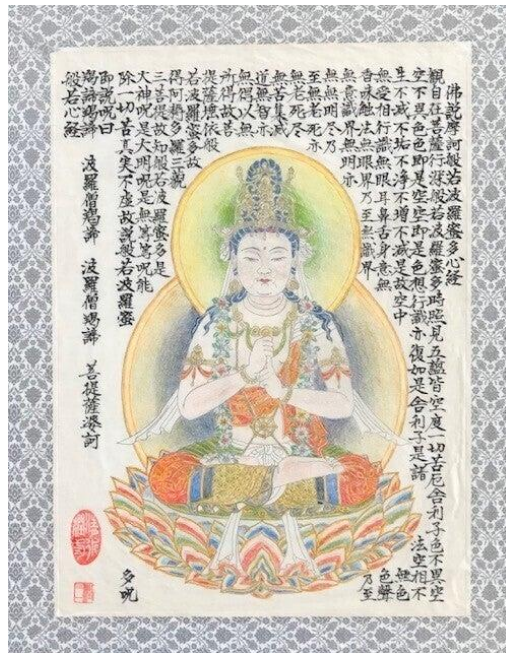 佛説摩訶般若波羅蜜多心経
観自在菩薩行深般若波羅蜜多時照見五蘊皆空度一切苦厄舎利子色不異空
空不異色色即是空空即是色想行識亦復如是舎利子是諸 法空相不
生不滅不垢不浄不増不減是故空中 無色
無受想行識無眼耳鼻舌身意無 色聲
香味触法無眼界乃至無識界 乃至
無意識界無明亦
無無明尽乃
至無老死亦
無老死尽
無苦集滅
道無智亦
無得以無
所得故菩
提薩埵依般
若波羅蜜多故
得阿耨多羅三藐
三菩提故知般若波羅蜜多是
大神呪是大明呪是無等等呪能
除一切苦真実不虚故説般若波羅蜜 多呪
即説呪曰
羯諦羯諦 波羅僧羯諦 波羅僧羯諦 菩提薩婆訶
般若心経